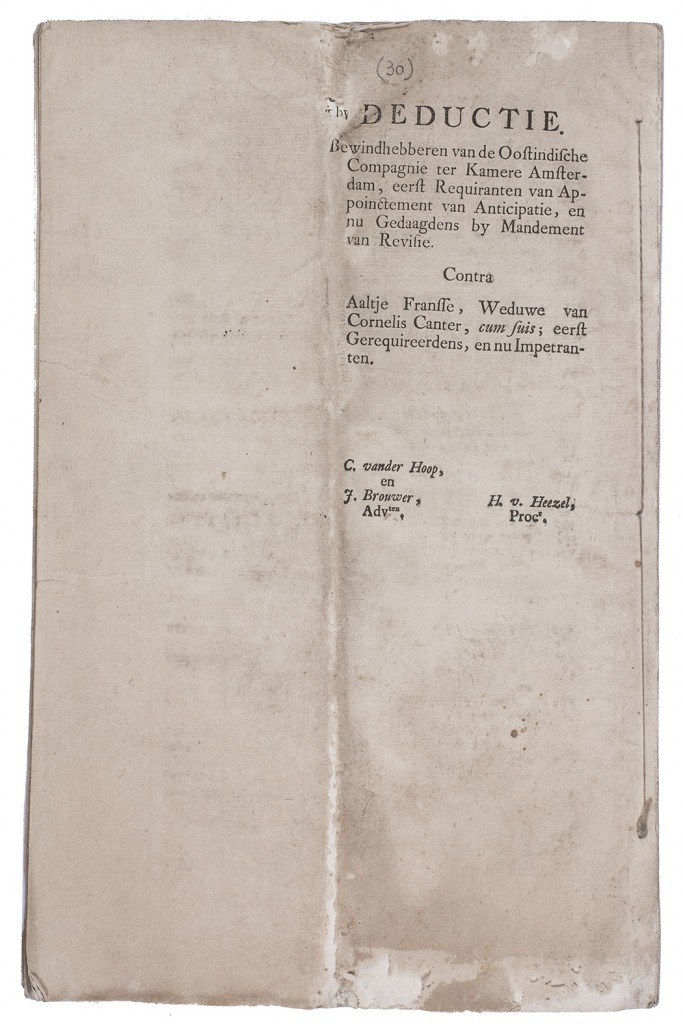 (30)
by
DEDUCTIE.
Bewindhebberen van de Ooſtindiſche
Compagnie ter Kamere Amſter-
dam, eerſt Requiranten van Ap-
poinctement van Anticipatie, en
nu Gedaagdens by Mandement
van Reviſie.
Contra
Aaltje Franſſe, Weduwe van
Cornelis Canter, cum ſuis; eerſt
Gerequireerdens, en nu Impetran-
ten.
C. vander Hoop,
en
J. Brouwer,
Advten,
H. v. Heezel,
Procr,